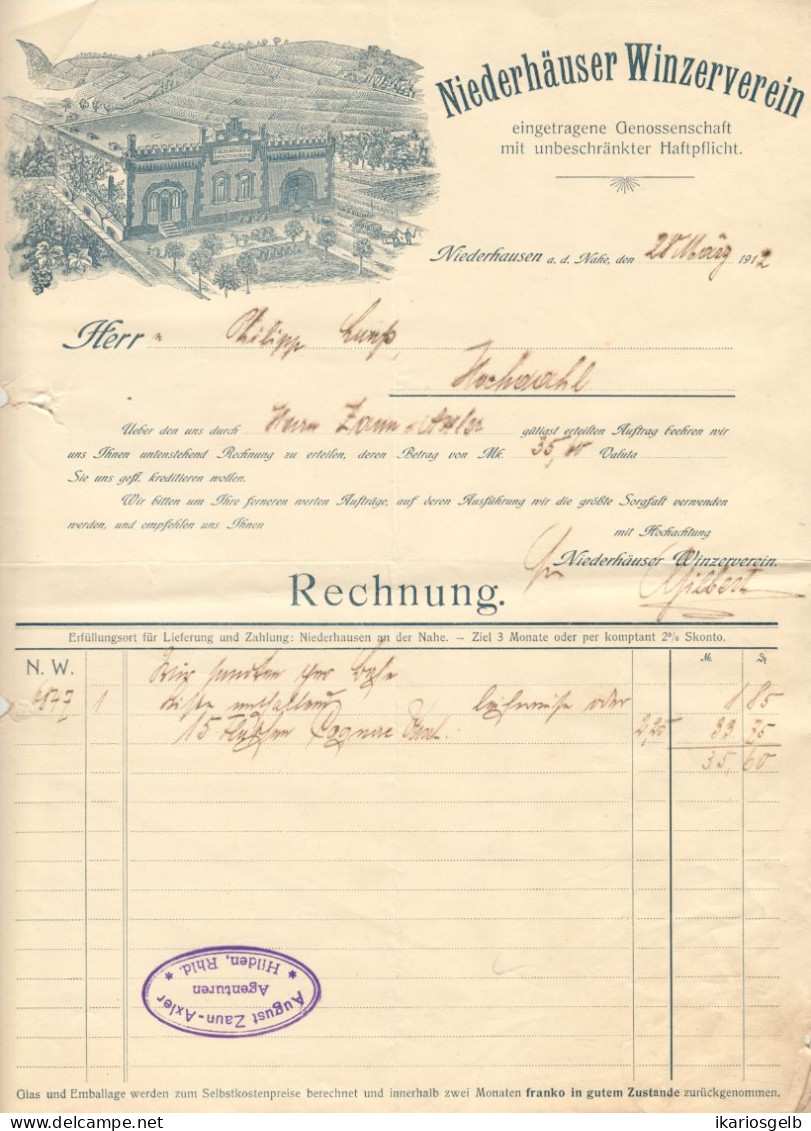 Niederhäuser Winzerverein
eingetragene Genossenschaft
mit unbeschränkter Haftpflicht.
Niederhausen a. d. Nahe, den 28 März 1912
Herrn Philipp
Hochdahl
Ueber den uns durch Herrn Zaun-Axler gütigst erteilten Auftrag beehren wir
uns Ihnen untenstehend Rechnung zu erteilen, deren Betrag von Mk. 35,60 Valuta
Sie uns gefl. kreditieren wollen.
Wir bitten um Ihre ferneren werten Aufträge, auf deren Ausführung wir die größte Sorgfalt verwenden
werden, und empfehlen uns Ihnen
mit Hochachtung
Niederhäuser Winzerverein.
Gilbert
Rechnung.
Erfüllungsort für Lieferung und Zahlung: Niederhausen an der Nahe. – Ziel 3 Monate oder per komptant 2% Skonto.
M. ₰
N. W. Wir sandten per Bahn
1 Kiste enthaltend leihweise oder 1 85
15 Flaschen Cognac 2,25 33 75
35,60
August Zaun-Axler
Agenturen
* Hilden, Rhld. *
Glas und Emballage werden zum Selbstkostenpreise berechnet und innerhalb zwei Monaten franko in gutem Zustande zurückgenommen.
www.delcampe.net
ikariosgelb